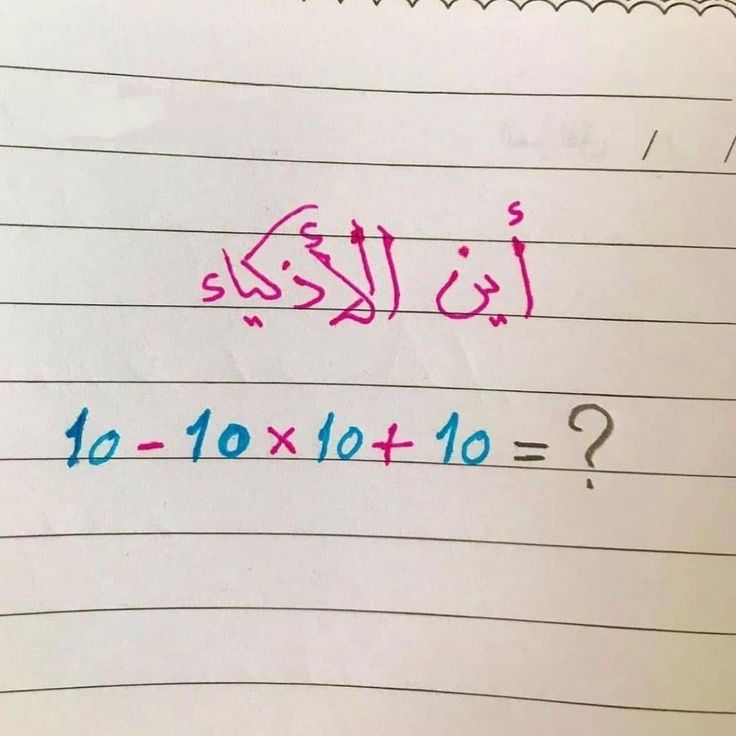 أين الأذكياء
10 - 10 × 10 + 10 = ?